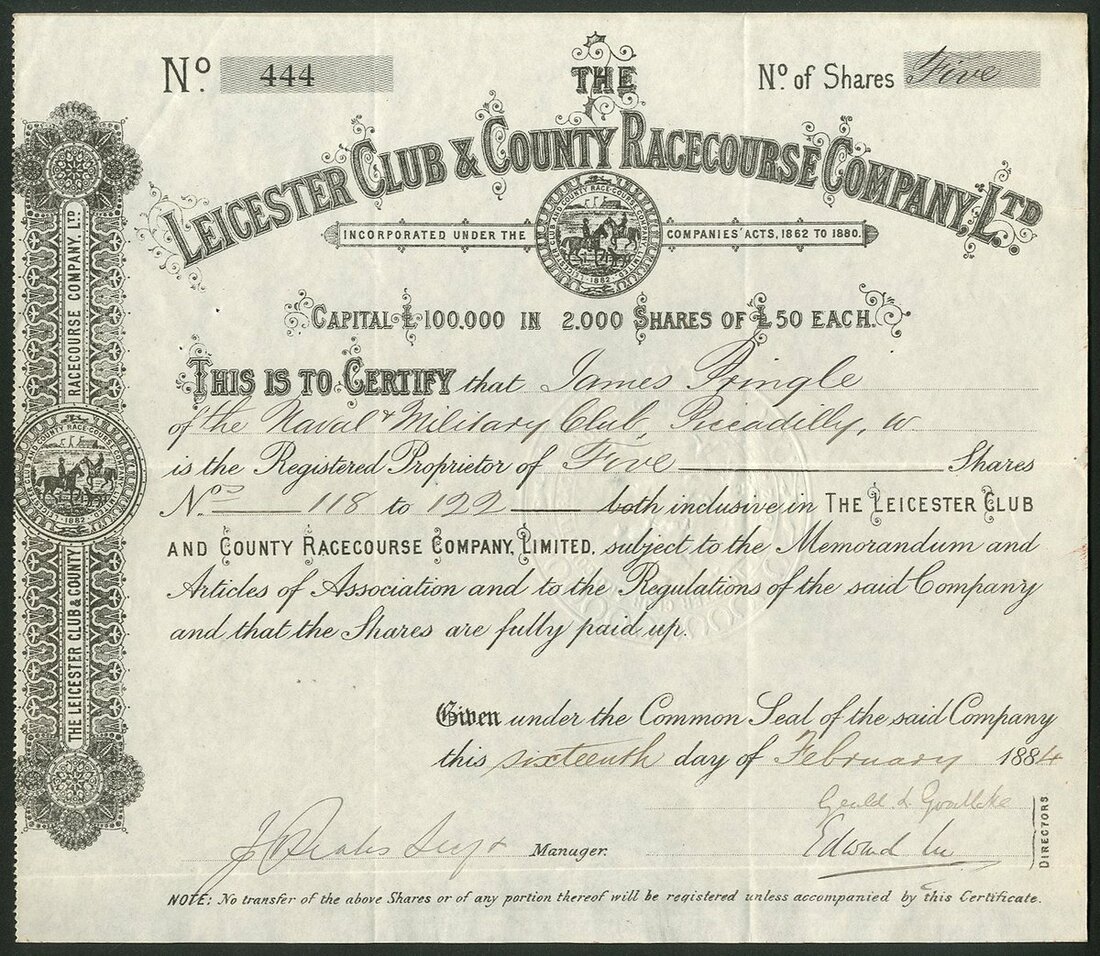 No. 444
THE
No. of Shares Five
LEICESTER CLUB & COUNTY RACECOURSE COMPANY, LTD
INCORPORATED UNDER THE COMPANIES' ACTS, 1862 TO 1880.
LEICESTER CLUB AND COUNTY RACE-COURSE COMPANY LIMITED
1882
CAPITAL £100.000 IN 2.000 SHARES OF £50 EACH.
THIS IS TO CERTIFY that James Pringle
of the Naval & Military Club, Piccadilly, W.
is the Registered Proprietor of Five Shares
Nos. 118 to 122 both inclusive in THE LEICESTER CLUB
AND COUNTY RACECOURSE COMPANY, LIMITED, subject to the Memorandum and
Articles of Association and to the Regulations of the said Company
and that the Shares are fully paid up.
Given under the Common Seal of the said Company
this sixteenth day of February 1884
Edward
Manager.
DIRECTORS
NOTE: No transfer of the above Shares or of any portion thereof will be registered unless accompanied by this Certificate.
THE LEICESTER CLUB & COUNTY RACECOURSE COMPANY, LTD
1882